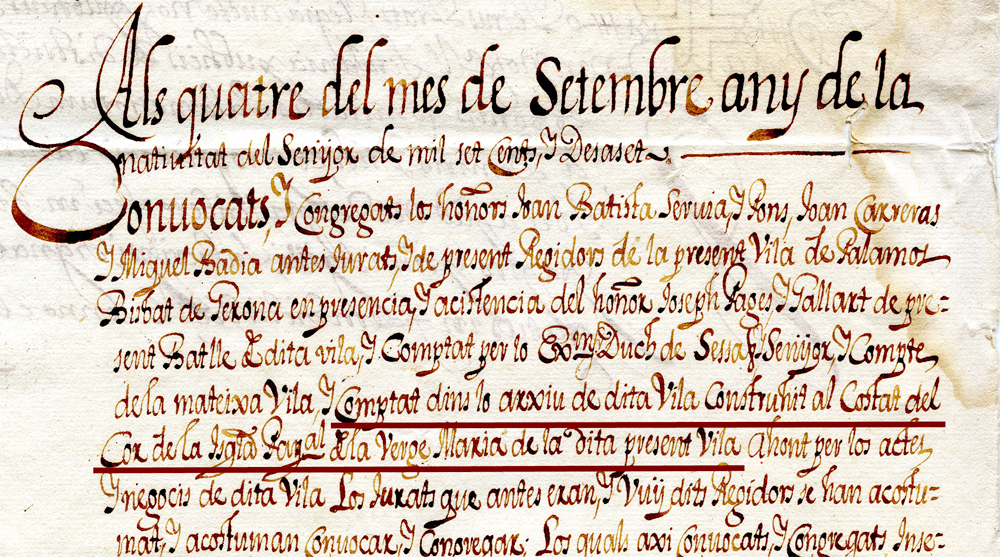 Als quatre del mes de Setembre any de la
nativitat del Senyor de mil set Cents, Y Desaset.
Convocats, Y Congregats los hoñors Joan Batista Servia, Y Pons, Joan Carreras
Y Miquel Badia antes Jurats, Y de present Regidors de la present Vila de Palamos
Bisbat de Gerona en presencia, Y acistencia del hoñor Joseph Pages, Y Gallart de pre-
sent Batlle de dita vila, Y Comptat per lo Exm Duch de Sessa Senyor, Y Compte
de la mateixa Vila, Y Comptat dins lo arxiu de dita Vila Construhit al Costat del
Cor de la Isgla Paral de la Verge Maria de la dita present Vila Ahont per los actes
Y negocis de dita Vila Los Jurats que antes eran, Y Vuy dits Regidors se han acostu-
mat, Y acostuman Convocar, Y Conovegar; Los quals axi Convocats, Y Congregats Inse-